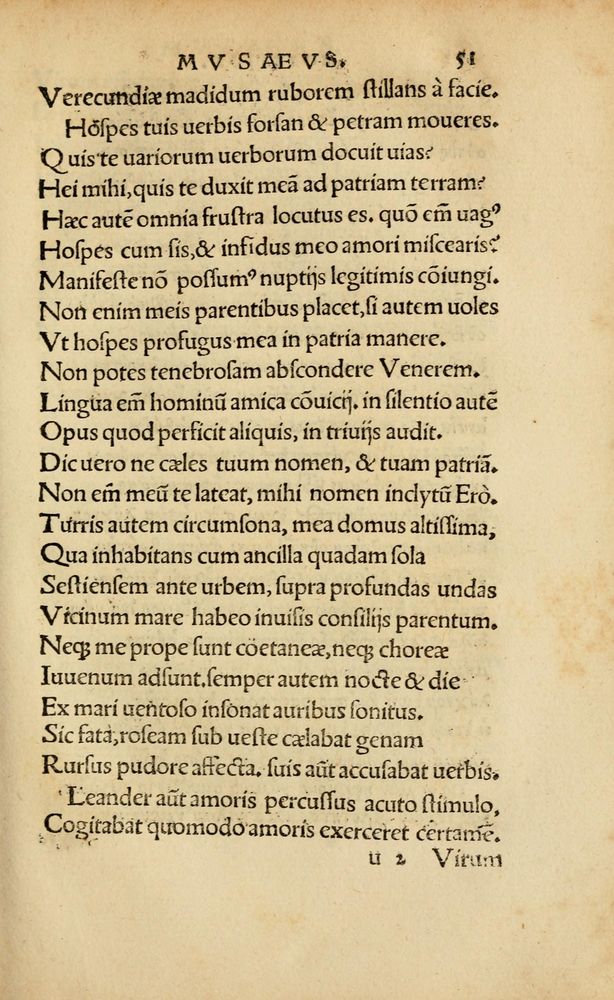 M V S AE V S. 51
Verecundiæ madidum ruborem ſtillans à facie.
Hoſpes tuis uerbis forſan & petram moueres.
Quis te uariorum uerborum docuit uias?
Hei mihi, quis te duxit meã ad patriam terram?
Hæc autẽ omnia fruſtra locutus es. quõ em̃ uagꝰ
Hoſpes cum ſis, & infidus meo amori miſcearis?
Manifeſte nõ poſſumꝰ nuptijs legitimis cõiungi.
Non enim meis parentibus placet, ſi autem uoles
Vt hoſpes profugus mea in patria manere.
Non potes tenebroſam abſcondere Venerem.
Lingua em̃ hominũ amica cõuicij. in ſilentio autẽ
Opus quod perficit aliquis, in triuijs audit.
Dic uero ne cæles tuum nomen, & tuam patriã.
Non em̃ meũ te lateat, mihi nomen inclytũ Erò.
Turris autem circumſona, mea domus altiſſima,
Qua inhabitans cum ancilla quadam ſola
Seſtienſem ante urbem, ſupra profundas undas
Vicinum mare habeo inuiſis conſilijs parentum.
Neqꝫ me prope ſunt coetaneæ, neqꝫ choreæ
Iuuenum adſunt. ſemper autem nocte & die
Ex mari uentoso inſonat auribus ſonitus.
Sic fata, roſeam ſub ueſte cælabat genam
Rurſus pudore affecta. ſuis aũt accuſabat uerbis.
Leander aũt amoris percuſſus acuto ſtimulo,
Cogitabat quomodo amoris exerceret certamẽ.
u 2 Virum